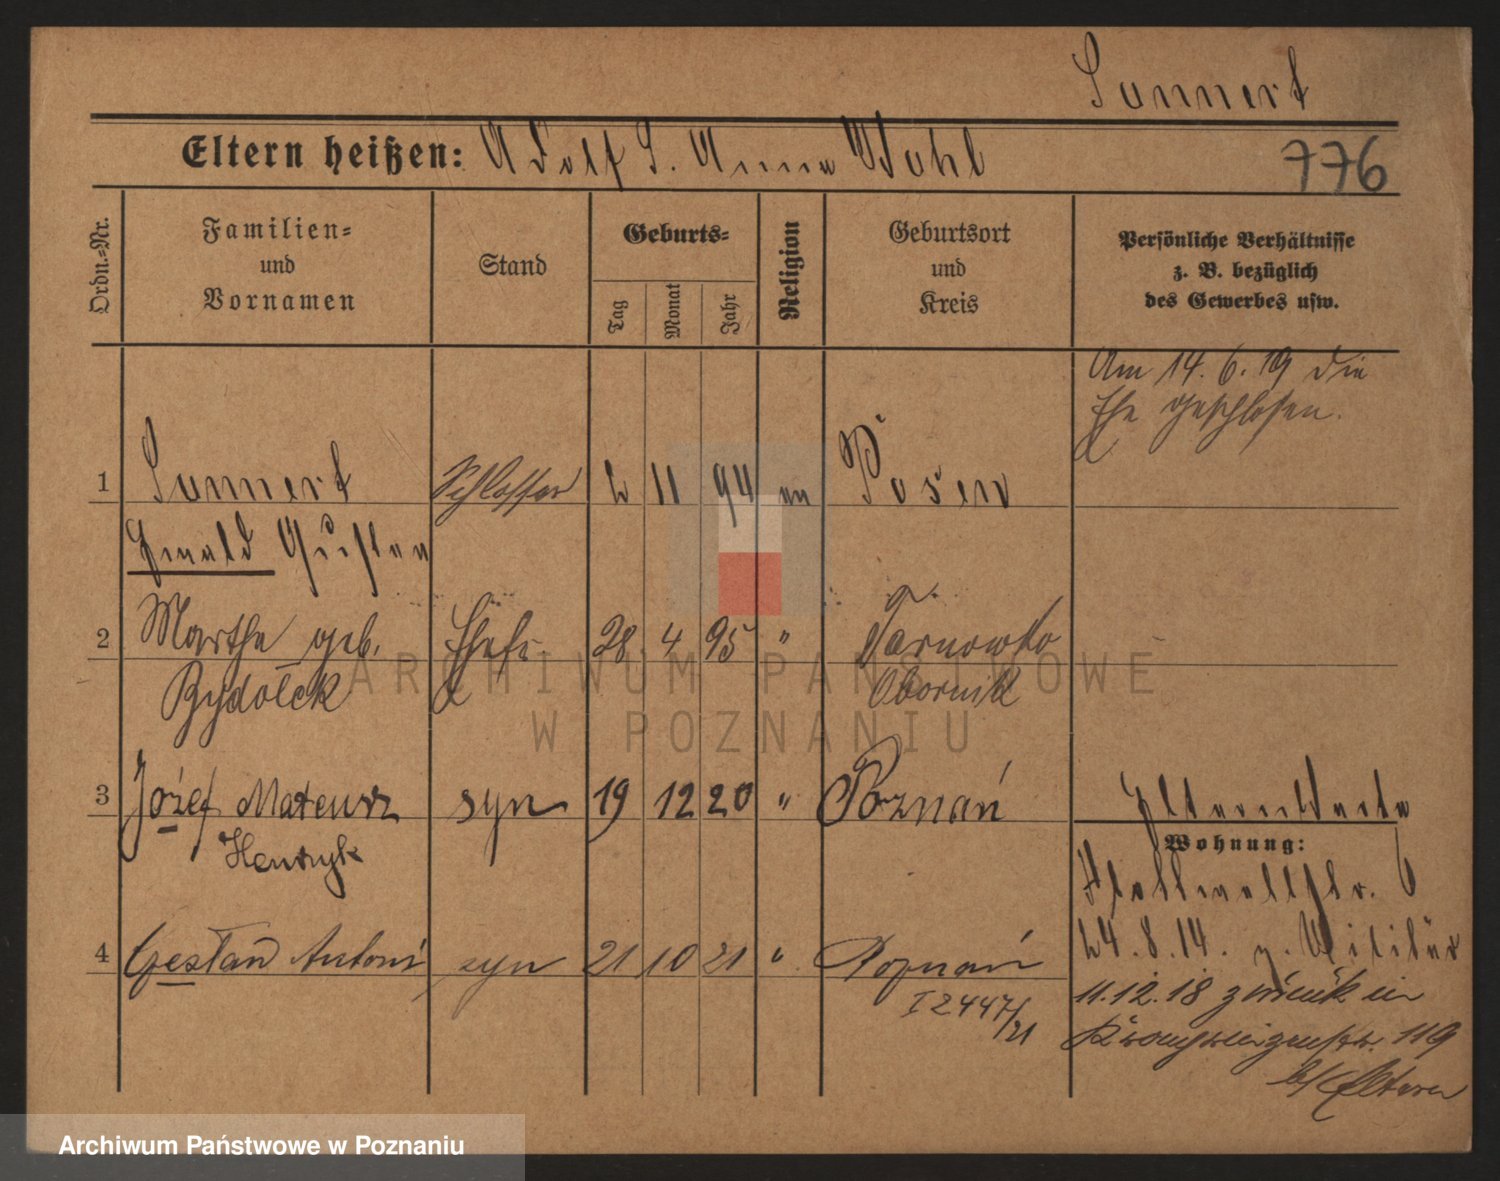 Sonnert
Eltern heißen: Adolf S. Anna Wohl
776
Ordn.-Nr.
Familien-
und
Vornamen
Stand
Geburts-
Tag
Monat
Jahr
Religion
Geburtsort
und
Kreis
Persönliche Verhältnisse
z. B. bezüglich
des Gewerbes usw.
Am 14.6.19 die
Ehe geschlossen.
1 Sonnert Schlosser 2 11 94 Posen
Ewald Gustav
2 Martha geb. Ehefr. 28 4 95 " Tarnowko
Bydolek Obornik
3 Józef Mateusz syn 19 12 20 " Poznań
Henryk
Elternkarte
Wohnung:
Halbwallstr. 6
4 Gestan Antoni syn 21 10 21 " Poznań
24.8.14. z. Militär
I 2447/21
11.12.18 zurück in
Kronprinzenstr. 119
b/ Eltern
ARCHIWUM PAŃSTWOWE
W POZNANIU
Archiwum Państwowe w Poznaniu